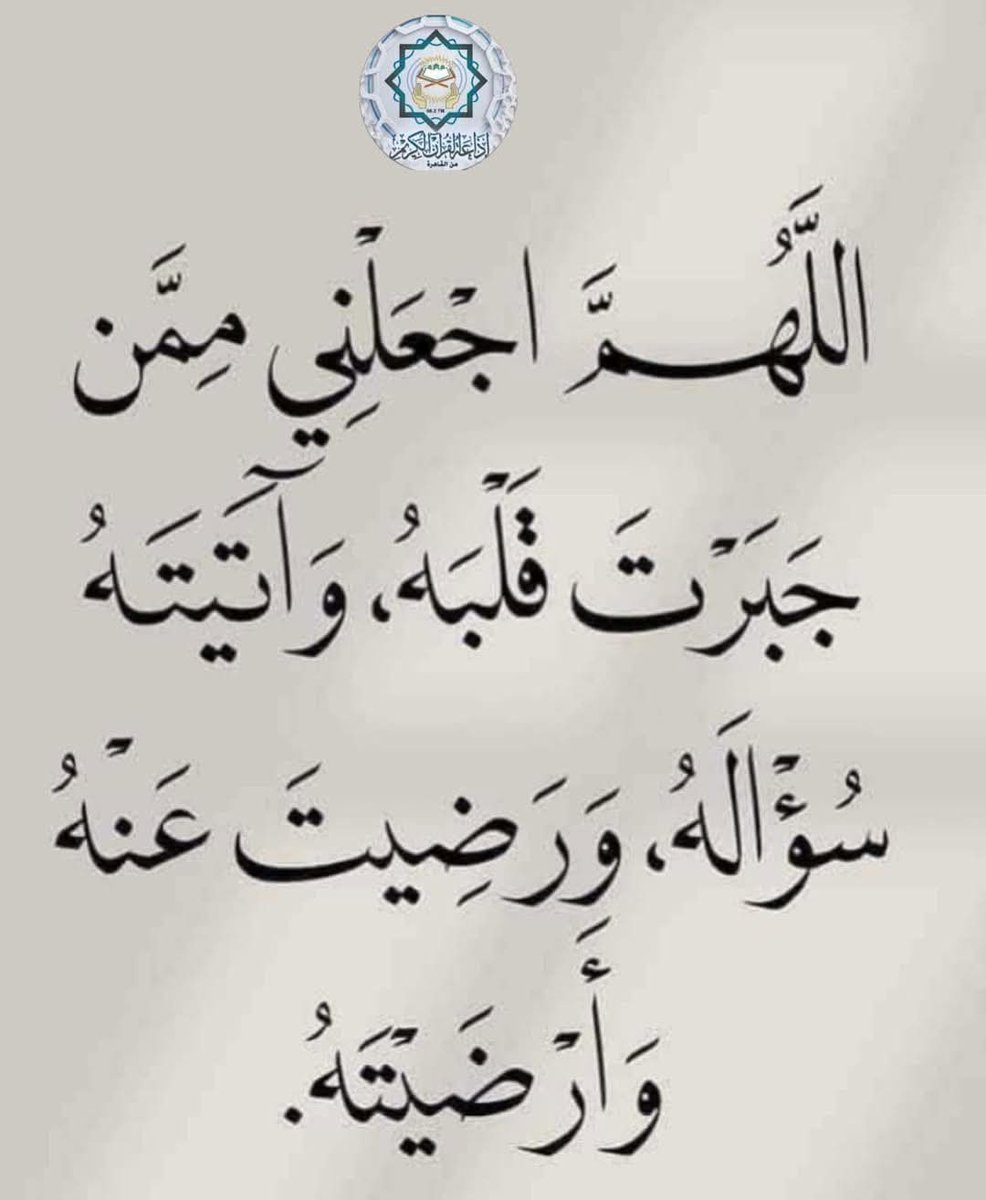 إذاعة القرآن الكريم
من القاهرة
اللَّهُمَّ اجْعَلْنِي مِمَّن
جَبَرْتَ قَلْبَهُ، وَآتَيتَهُ
سُؤْالَهُ، وَرَضِيتَ عَنْهُ
وَأَرْضَيْتَهُ.